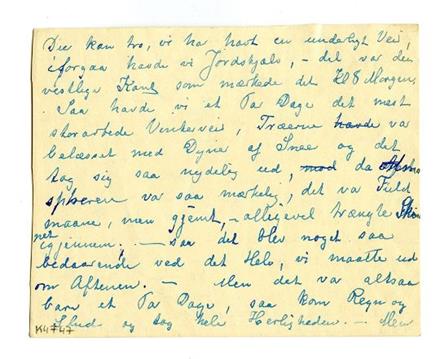 Du kan tro, vi ha havt en underligt Vei,
iforgaa havde vi Jordskjælv, – det va den
vestlige Kant som mærkede det Kl 8 Morgen,
Saa havde vi et Par Dage det mest
Vinterveir, Træerne havde va
belæsset med Dyner af Snee og det
tog sig saa nydelig ud, mod da Atmos
spheren va saa mærkelig, det va Fuld
maane, men gjemt, – alligevel trængte Skin
net igjennem; – saa det blev noget saa
bedaarende ved det Hele, vi maatte ud
om Aftenen. – Men det va altsaa
bare et Par Dage, saa kom Regn og
Slud og tog hele Herligheden. – Men
K4747